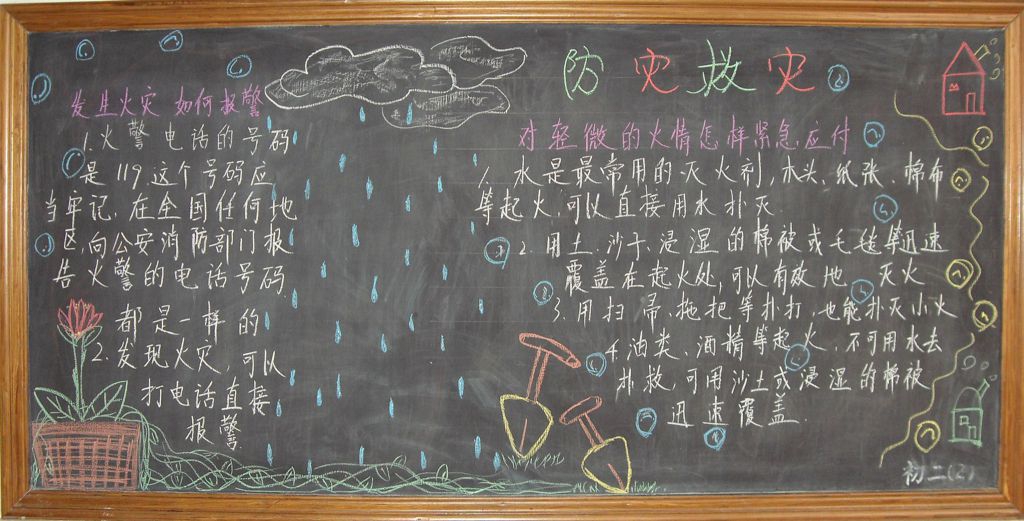 防灾救灾
发生火灾 如何报警
1.火警电话的号码
是119.这个号码应
当牢记,在全国任何地
区,向公安消防部门报
告火警的电话号码
都是一样的
2.发现火灾,可以
打电话直接
报警
对轻微的火情怎样紧急应付
1、水是最常用的灭火剂,木头、纸张、棉布
等起火,可以直接用水扑灭.
2.用土、沙子、浸湿的棉被或毛毯等迅速
覆盖在起火处,可以有效地 灭火
3.用扫帚、拖把等扑打,也能扑灭小火
4.油类、酒精等起火,不可用水去
扑救,可用沙土或浸湿的棉被
迅速覆盖.
初二(2)